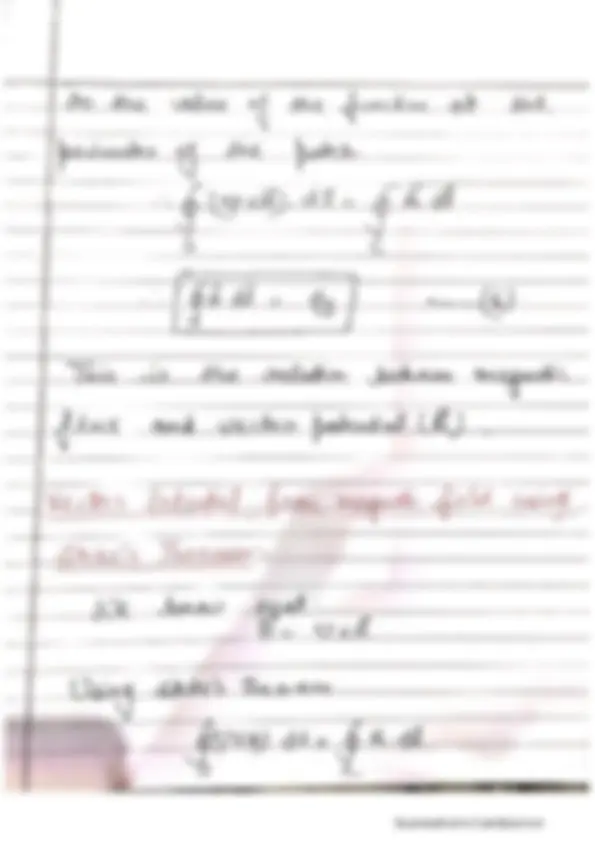 on the value of the function at the
perimeter of the patch
∮ (∇×A) . ds = ∮ A . dl
S C
∮ A . dl = Φ_B
This is the relation between magnetic
flux and vector potential (A).
Vector Potential from magnetic field using
We know that
B = ∇×A
Using Theorem
∮ (∇×A) . ds = ∮ A . dl
S C